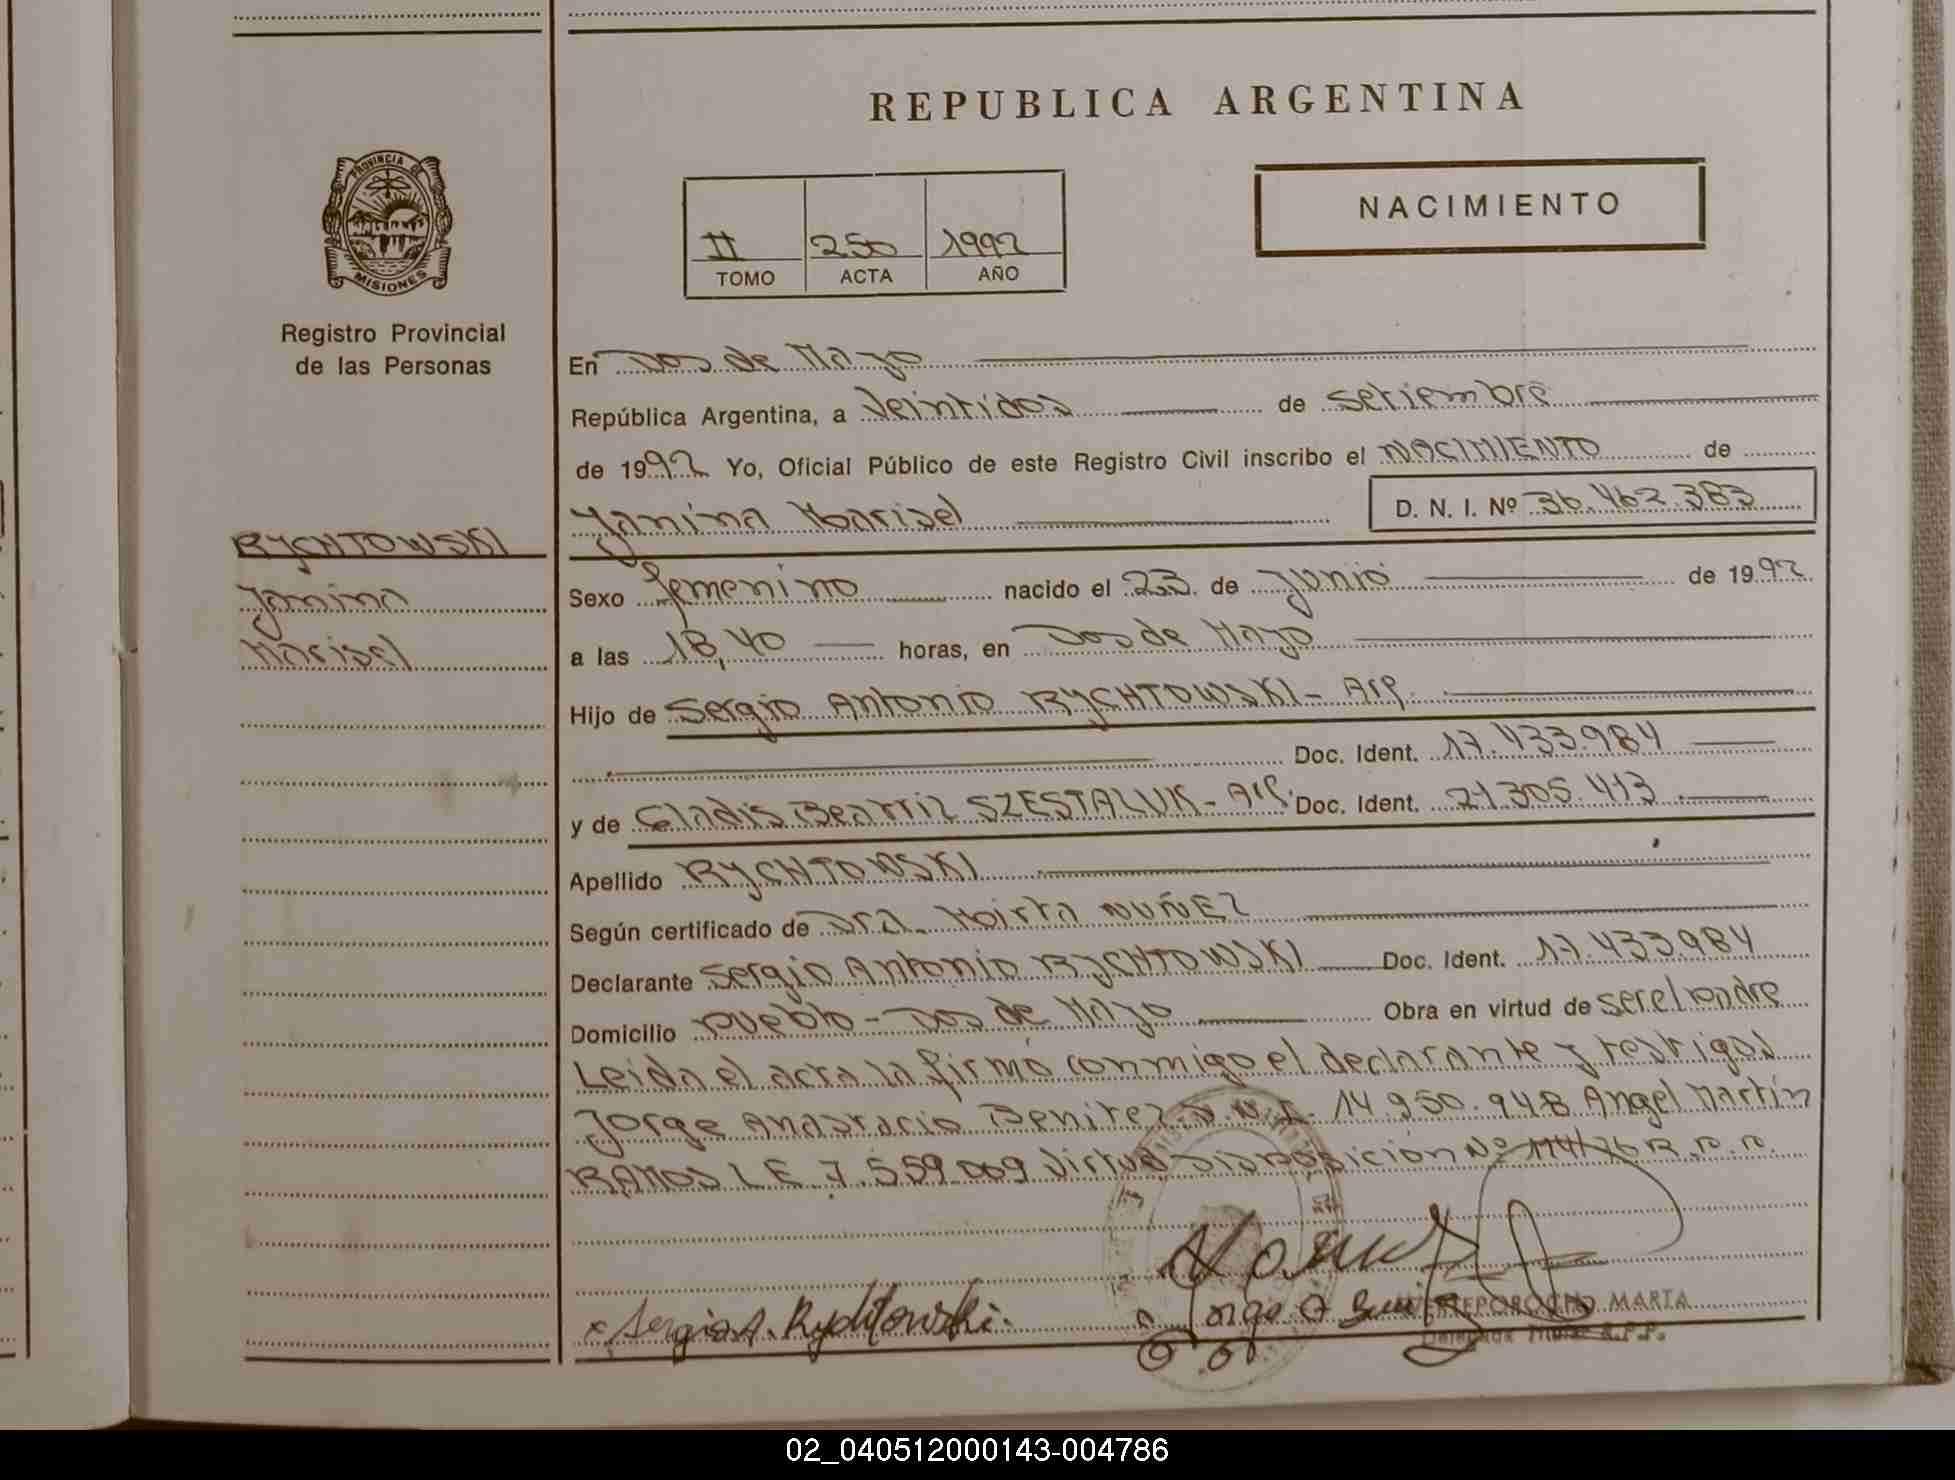 REPUBLICA ARGENTINA
PROVINCIA DE
MISIONES
Registro Provincial
de las Personas
NACIMIENTO
II 250 1992
TOMO ACTA AÑO
RYCHTOWSKI
Yanina
Marisel
En Dos de Mayo
República Argentina, a Veintidos de Setiembre
de 1992 Yo, Oficial Público de este Registro Civil inscribo el NACIMIENTO de
Yanina Marisel D. N. I. Nº 36.462.383
Sexo femenino nacido el 23 de Junio de 1992
a las 18,40 horas, en Dos de Mayo
Hijo de Sergio Antonio RYCHTOWSKI - Arg.
Doc. Ident. 17.433.984
y de Gladis Beatriz SZESTALUK - Arg. Doc. Ident. 21.305.413
Apellido RYCHTOWSKI
Según certificado de Dra. Mirta NUÑEZ
Declarante Sergio Antonio RYCHTOWSKI Doc. Ident. 17.433.984
Domicilio Pueblo - Dos de Mayo Obra en virtud de ser el padre
Leida el acta la firmó conmigo el declarante y testigos
Jorge Anastacio Benitez D.N.I. 14.950.948 Angel Martín
RAMOS L E 7.559.009 Virtud Disposición Nº 114/76 R.P.P.
x Sergio A. Rychtowski.
Jorge A
MARTA
Titular R.P.P.
02_040512000143-004786